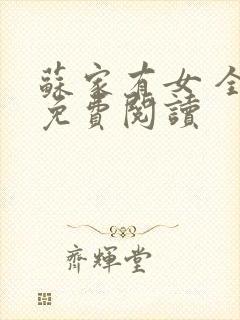 蘇家有女 全
免費閱讀
齊輝堂